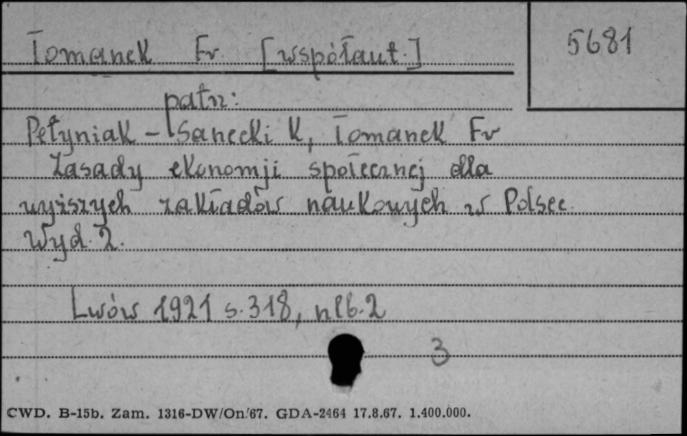 Tomanek Fr [współaut.]
5681
patrz:
Pełyniak-Sanecki K, Tomanek Fr
Zasady ekonomji społecznej dla
wyższych zakładów naukowych w Polsce.
Wyd. 2.
Lwów 1921 s. 318, nlb. 2
3
CWD. B-15b. Zam. 1316-DW/On/67. GDA-2464 17.8.67. 1.400.000.